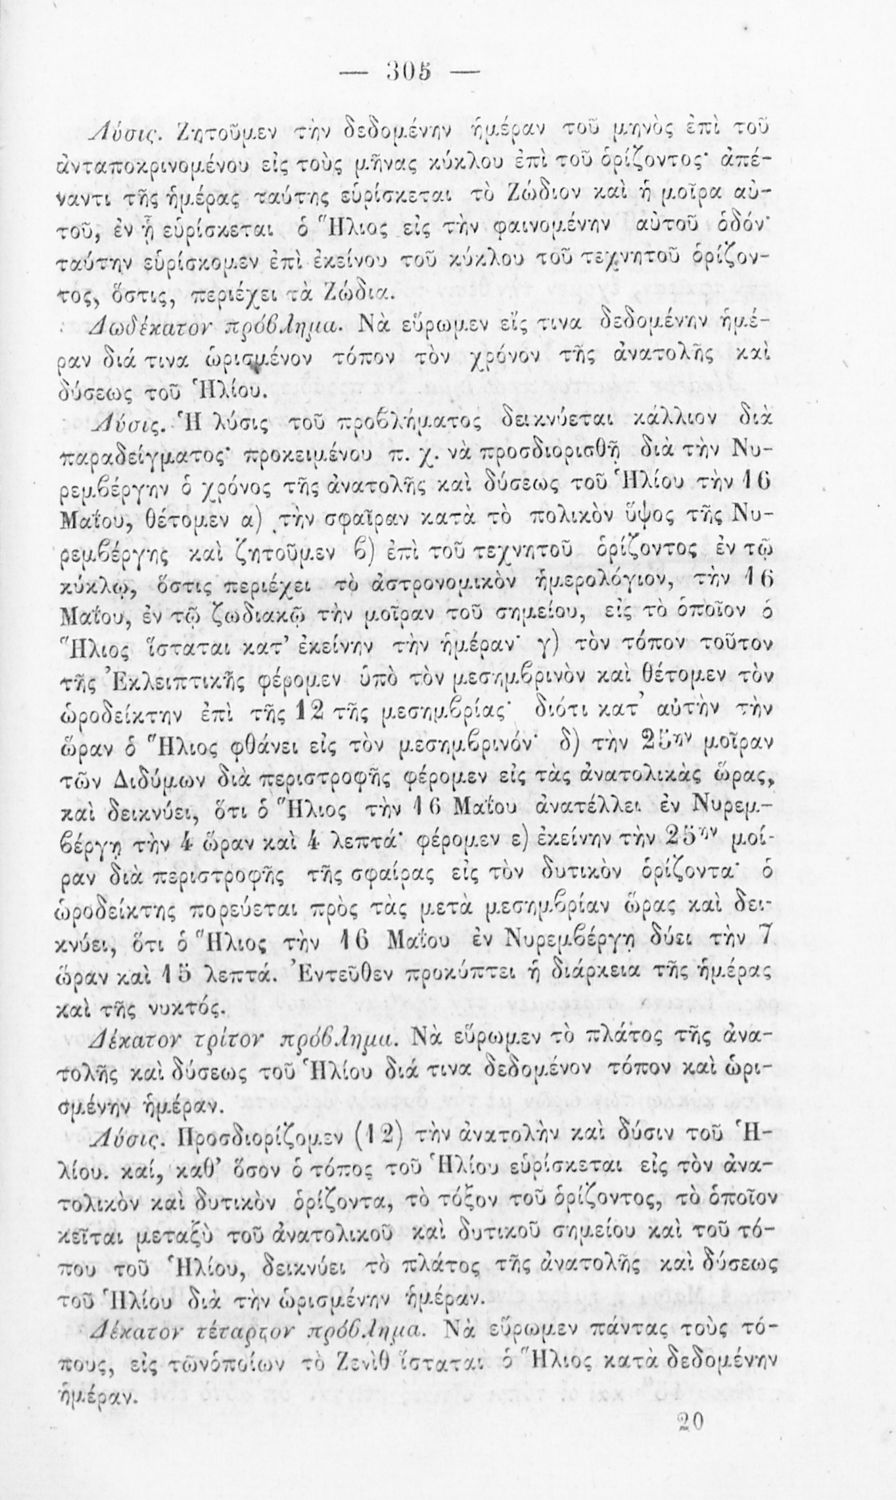 — 305 —
Λύσις. Ζητοῦμεν τὴν δεδομένην ἡμέραν τοῦ μηνὸς ἐπὶ τοῦ
ἀνταποκρινομένου εἰς τοὺς μῆνας κύκλου ἐπὶ τοῦ ὁρίζοντος· ἀπέ-
ναντι τῆς ἡμέρας ταύτης εὑρίσκεται τὸ Ζώδιον καὶ ἡ μοῖρα αὐ-
τοῦ, ἐν ᾗ εὑρίσκεται ὁ Ἥλιος εἰς τὴν φαινομένην αὐτοῦ ὁδόν·
ταύτην εὑρίσκομεν ἐπὶ ἐκείνου τοῦ κύκλου τοῦ τεχνητοῦ ὁρίζον-
τος, ὅστις, περιέχει τὰ Ζώδια.
Δωδέκατον πρόβλημα. Νὰ εὕρωμεν εἴς τινα δεδομένην ἡμέ-
ραν διά τινα ὡρισμένον τόπον τὸν χρόνον τῆς ἀνατολῆς καὶ
δύσεως τοῦ Ἡλίου.
Λύσις. Ἡ λύσις τοῦ προβλήματος δεικνύεται κάλλιον διὰ
παραδείγματος· προκειμένου π. χ. νὰ προσδιορισθῇ διὰ τὴν Νυ-
ρεμβέργην ὁ χρόνος τῆς ἀνατολῆς καὶ δύσεως τοῦ Ἡλίου τὴν 16
Μαΐου, θέτομεν α) τὴν σφαῖραν κατὰ τὸ πολικὸν ὕψος τῆς Νυ-
ρεμβέργης καὶ ζητοῦμεν β) ἐπὶ τοῦ τεχνητοῦ ὁρίζοντος ἐν τῷ
κύκλῳ, ὅστις περιέχει τὸ ἀστρονομικὸν ἡμερολόγιον, τὴν 16
Μαΐου, ἐν τῷ ζωδιακῷ τὴν μοῖραν τοῦ σημείου, εἰς τὸ ὁποῖον ὁ
Ἥλιος ἵσταται κατ’ ἐκείνην τὴν ἡμέραν· γ) τὸν τόπον τοῦτον
τῆς Ἐκλειπτικῆς φέρομεν ὑπὸ τὸν μεσημβρινὸν καὶ θέτομεν τὸν
ὡροδείκτην ἐπὶ τῆς 12 τῆς μεσημβρίας· διότι κατ’ αὐτὴν τὴν
ὥραν ὁ Ἥλιος φθάνει εἰς τὸν μεσημβρινόν· δ) τὴν 25ην μοῖραν
τῶν Διδύμων διὰ περιστροφῆς φέρομεν εἰς τὰς ἀνατολικὰς ὥρας,
καὶ δεικνύει, ὅτι ὁ Ἥλιος τὴν 16 Μαΐου ἀνατέλλει ἐν Νυρεμ-
βέργῃ τὴν 4 ὥραν καὶ 4 λεπτά· φέρομεν ε) ἐκείνην τὴν 25ην μοί-
ραν διὰ περιστροφῆς τῆς σφαίρας εἰς τὸν δυτικὸν ὁρίζοντα· ὁ
ὡροδείκτης πορεύεται πρὸς τὰς μετὰ μεσημβρίαν ὥρας καὶ δει-
κνύει, ὅτι ὁ Ἥλιος τὴν 16 Μαΐου ἐν Νυρεμβέργῃ δύει τὴν 7
ὥραν καὶ 15 λεπτά. Ἐντεῦθεν προκύπτει ἡ διάρκεια τῆς ἡμέρας
καὶ τῆς νυκτός.
Δέκατον τρίτον πρόβλημα. Νὰ εὕρωμεν τὸ πλάτος τῆς ἀνα-
τολῆς καὶ δύσεως τοῦ Ἡλίου διά τινα δεδομένον τόπον καὶ ὡρι-
σμένην ἡμέραν.
Λύσις. Προσδιορίζομεν (12) τὴν ἀνατολὴν καὶ δύσιν τοῦ Ἡ-
λίου. καί, καθ’ ὅσον ὁ τόπος τοῦ Ἡλίου εὑρίσκεται εἰς τὸν ἀνα-
τολικὸν καὶ δυτικὸν ὁρίζοντα, τὸ τόξον τοῦ ὁρίζοντος, τὸ ὁποῖον
κεῖται μεταξὺ τοῦ ἀνατολικοῦ καὶ δυτικοῦ σημείου καὶ τοῦ τό-
που τοῦ Ἡλίου, δεικνύει τὸ πλάτος τῆς ἀνατολῆς καὶ δύσεως
τοῦ Ἡλίου διὰ τὴν ὡρισμένην ἡμέραν.
Δέκατον τέταρτον πρόβλημα. Νὰ εὕρωμεν πάντας τοὺς τό-
πους, εἰς τῶν ὁποίων τὸ Ζενὶθ ἵσταται ὁ Ἥλιος κατὰ δεδομένην
ἡμέραν.
20